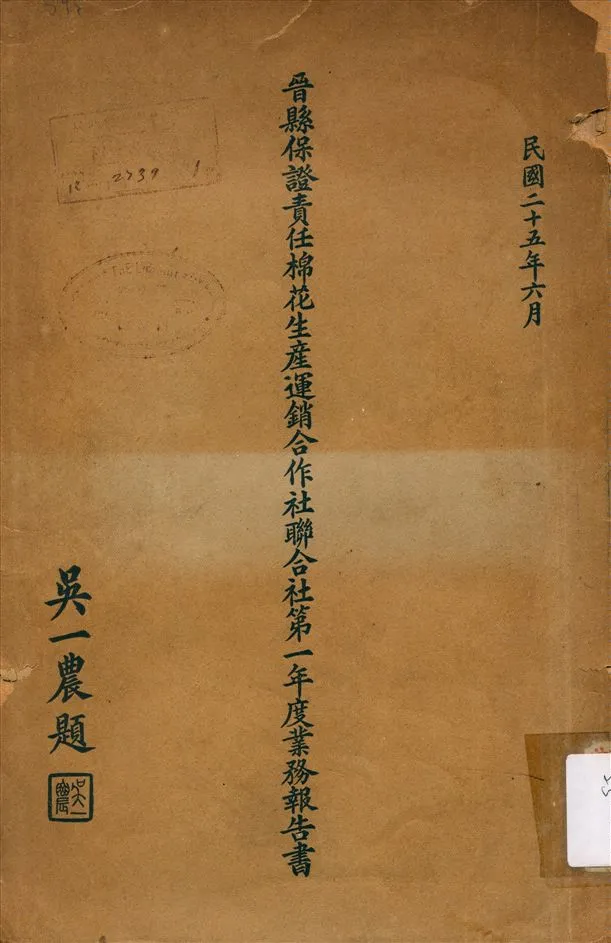 民國二十五年六月
晉縣保證責任棉花生產運銷合作社聯合社第一年度業務報告書
吳一農題
吳一農
2739 1